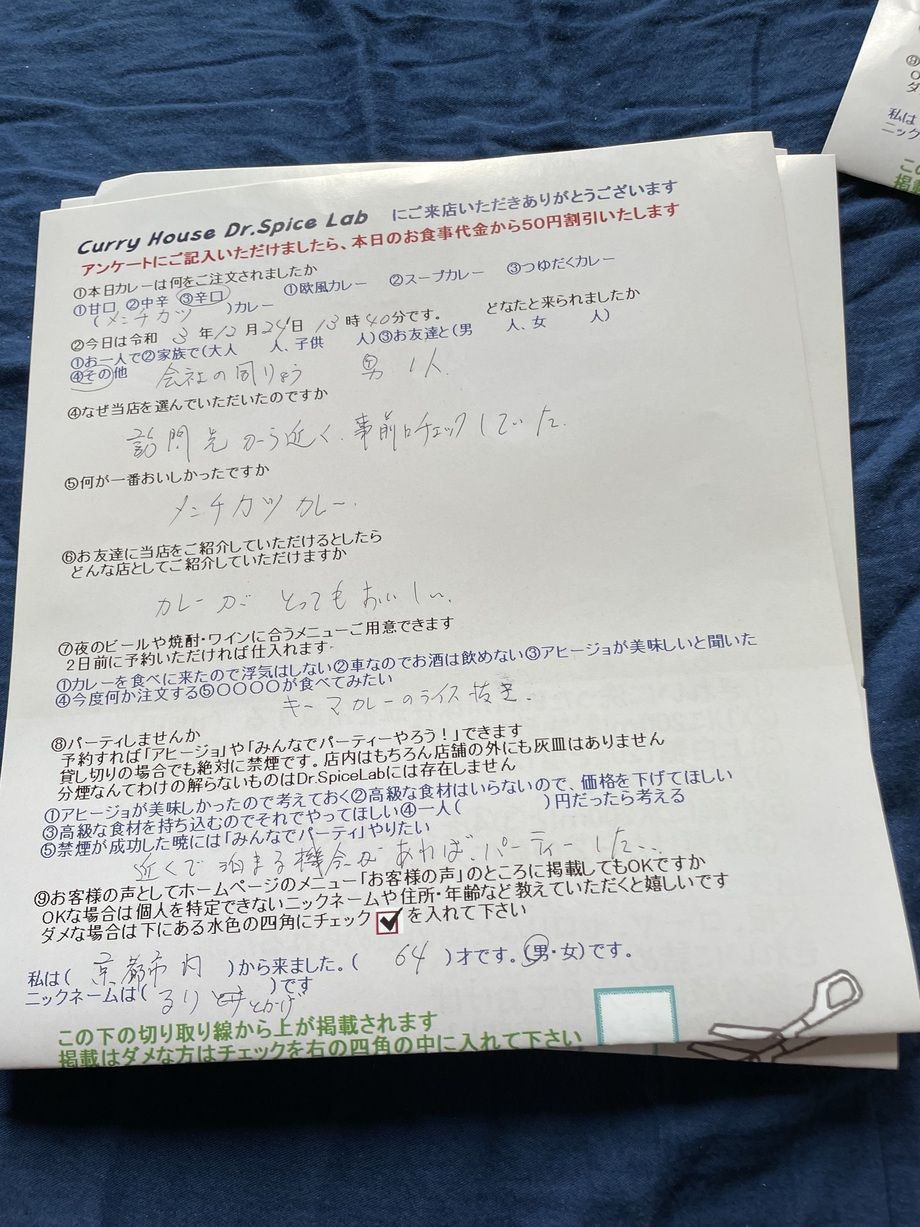 Curry House Dr.Spice Lab にご来店いただきありがとうございます
アンケートにご記入いただけましたら、本日のお食事代金から50円割引いたします
①本日カレーは何をご注文されましたか
①甘口 ②中辛 ③辛口 ①欧風カレー ②スープカレー ③つゆだくカレー
(メンチカツ)カレー
②今日は令和 3 年 12 月 24 日 13 時 40 分です。 どなたと来られましたか
①お一人で②家族で(大人 人、子供 人)③お友達と(男 人、女 人)
④その他 会社の同りょう 男 1人
④なぜ当店を選んでいただいたのですか
訪問先から近く、事前にチェックしていた。
⑤何が一番おいしかったですか
メンチカツカレー。
⑥お友達に当店をご紹介していただけるとしたら
どんな店としてご紹介していただけますか
カレーがとってもおいしい。
⑦夜のビールや焼酎・ワインに合うメニューご用意できます
2日前に予約いただければ仕入れます
①カレーを食べに来たので浮気はしない②車なのでお酒は飲めない③アヒージョが美味しいと聞いた
④今度何か注文する⑤〇〇〇〇が食べてみたい
キーマカレーのライス抜き。
⑧パーティしませんか
予約すれば「アヒージョ」や「みんなでパーティーやろう!」できます
貸し切りの場合でも絶対に禁煙です。店内はもちろん店舗の外にも灰皿はありません
分煙なんてわけの解らないものはDr.SpiceLabには存在しません
①アヒージョが美味しかったので考えておく②高級な食材はいらないので、価格を下げてほしい
③高級な食材を持ち込むのでそれでやってほしい④一人( )円だったら考える
⑤禁煙が成功した暁には「みんなでパーティ」やりたい
近くで泊まる機会があれば、パーティーしたい。
⑨お客様の声としてホームページのメニュー「お客様の声」のところに掲載してもOKですか
OKな場合は個人を特定できないニックネームや住所・年齢など教えていただくと嬉しいです
ダメな場合は下にある水色の四角にチェック✓を入れて下さい
私は( 京都市内 )から来ました。( 64 )才です。(男・女)です。
ニックネームは( るりとかげ )です
この下の切り取り線から上が掲載されます
掲載はダメな方はチェックを右の四角の中に入れて下さい
⑨
私は
ニック
掲載